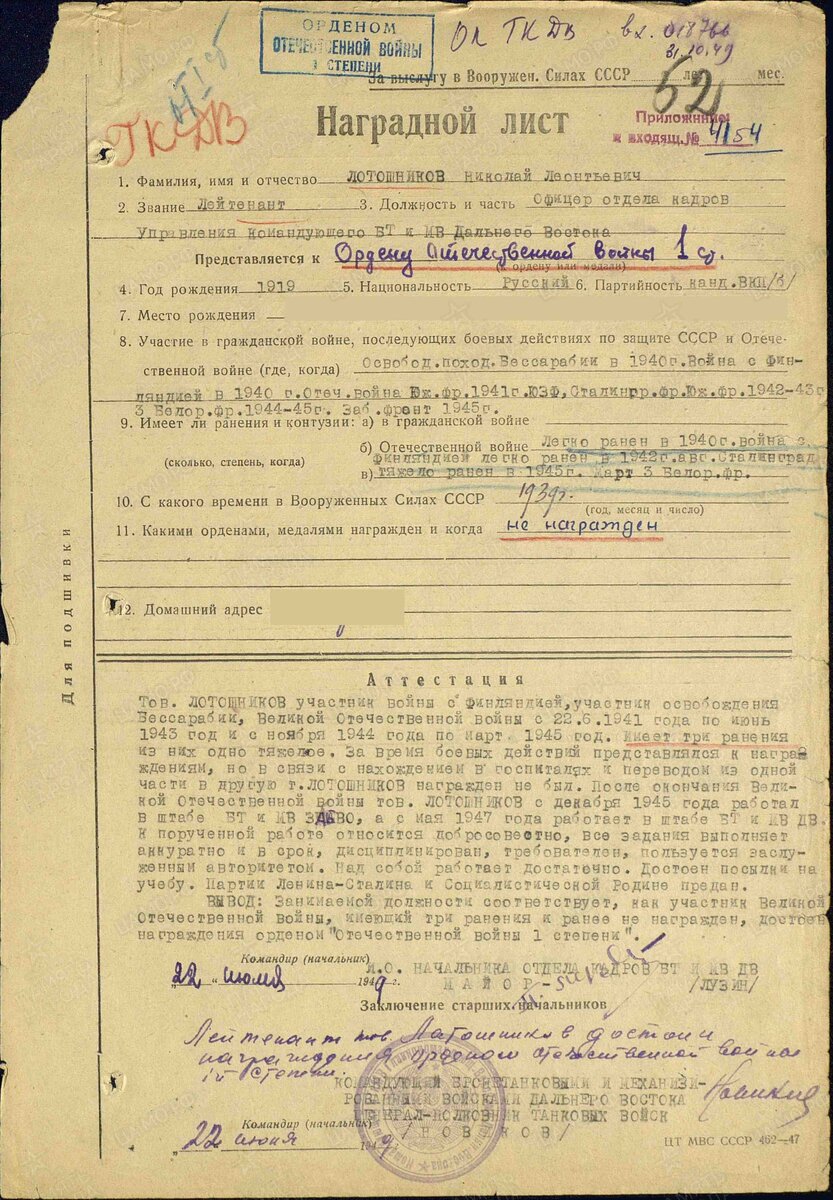 ОРДЕНОМ
ОТЕЧЕСТВЕННОЙ ВОЙНЫ
1 СТЕПЕНИ
ОЛ ТКДВ вх. 018766
31.10.49
За выслугу в Вооружен. Силах СССР лет мес.
52
ТКДВ
Наградной лист
Приложение
к входящ.№ 4154
1. Фамилия, имя и отчество ЛОТОШНИКОВ Николай Леонтьевич
2. Звание Лейтенант 3. Должность и часть Офицер отдела кадров
Управления командующего БТ и МВ Дальнего Востока
Представляется к Ордену Отечественной войны 1 ст.
(к ордену или медали)
4. Год рождения 1919 5. Национальность Русский 6. Партийность канд.ВКП/б/
7. Место рождения —
8. Участие в гражданской войне, последующих боевых действиях по защите СССР и Отече-
ственной войне (где, когда) Освобод.поход.Бессарабии в 1940г.Война с Фин-
ляндией в 1940 г.Отеч.война Юж.фр.1941г.ЮЗФ,Сталингр.фр.Юж.фр.1942-43г
3 Белор.фр.1944-45г. Заб.фронт 1945г.
9. Имеет ли ранения и контузии: а) в гражданской войне
б) Отечественной войне Легко ранен в 1940г.война с
(сколько, степень, когда) финляндией легко ранен в 1942г.авг.Сталинград
в) тяжело ранен в 1945г. Март 3 Белор.фр.
10. С какого времени в Вооруженных Силах СССР 1939г.
(год, месяц и число)
11. Какими орденами, медалями награжден и когда не награжден
12. Домашний адрес
Для подшивки
Аттестация
Тов. ЛОТОШНИКОВ участник войны с Финляндией,участник освобождения
Бессарабии, Великой Отечественной войны с 22.6.1941 года по июнь
1943 год и с ноября 1944 года по март 1945 год. Имеет три ранения
из них одно тяжелое. За время боевых действий представлялся к награ
ждениям, но в связи с нахождением в госпиталях и переводом из одной
части в другую т.ЛОТОШНИКОВ награжден не был. После окончания Вели-
кой Отечественной войны тов. ЛОТОШНИКОВ с декабря 1945 года работал
в штабе БТ и МВ ЗАБВО, а с мая 1947 года работает в штабе БТ и МВ ДВ.
К порученной работе относится добросовестно, все задания выполняет
аккуратно и в срок, дисциплинирован, требователен, пользуется заслу-
женным авторитетом. Над собой работает достаточно. Достоен посылки на
учебу. Партии Ленина-Сталина и Социалистической Родине предан.
ВЫВОД: Занимаемой должности соответствует, как участник Великой
Отечественной войны, имеющий три ранения и ранее не награжден, достоен
награждения орденом "Отечественной войны 1 степени".
Командир (начальник)
И.О. НАЧАЛЬНИКА ОТДЕЛА КАДРОВ БТ И МВ ДВ
„22 „ июня 1949г. МАЙОР- /ЛУЗИН/
Заключение старших начальников
Лейтенант тов. Латошников достоин
награждения орденом отечественной войны
1й степени.
КОМАНДУЮЩИЙ БРОНЕТАНКОВЫМИ И МЕХАНИЗИ-
РОВАННЫМИ ВОЙСКАМИ ДАЛЬНЕГО ВОСТОКА
ГЕНЕРАЛ-ПОЛКОВНИК ТАНКОВЫХ ВОЙСК
Командир (начальник) /НОВИКОВ/
„22 июня 1949г.
ЦТ МВС СССР 462—47